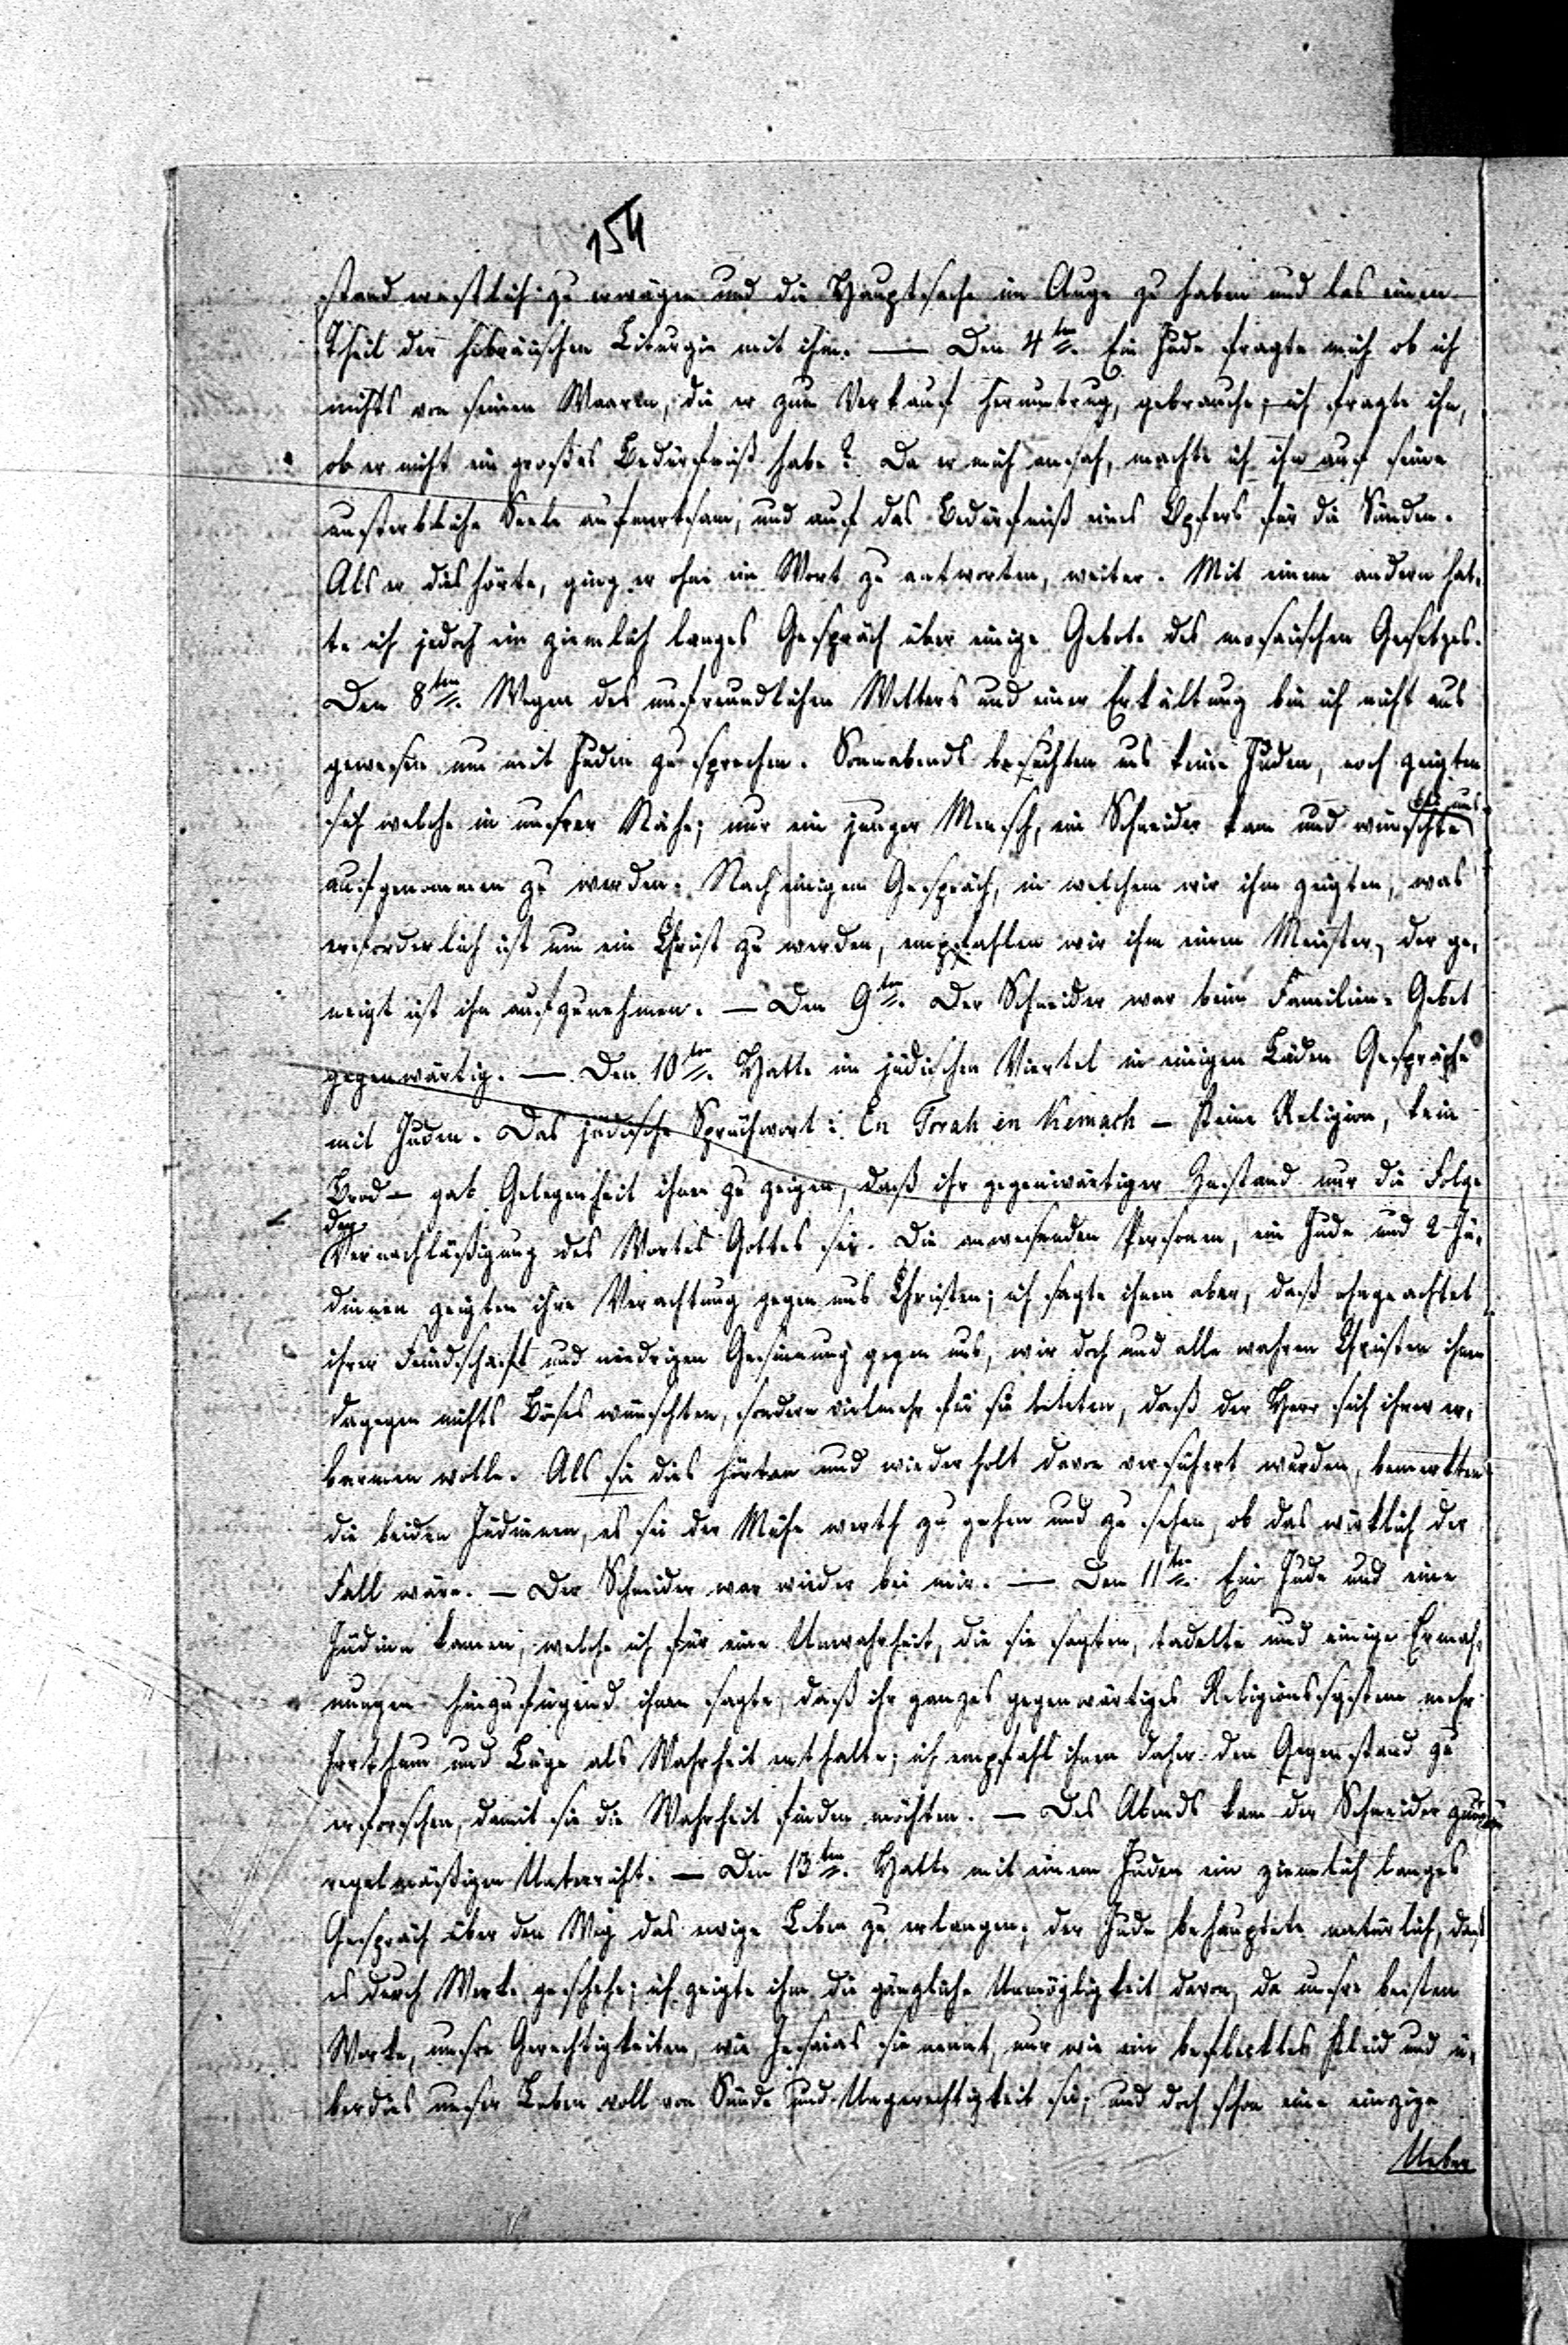 154
stand ernstlich zu erwägen und die Hauptsache im Auge zu haben und las einen
Theil der hebräischen Liturgie mit ihm. — Den 4ten. Ein Jude fragte mich ob ich
nichts von seinen Waaren, die er zum Verkauf herumtrug, gebrauche; ich fragte ihn,
ob er nicht ein großes Bedürfniß habe? Da er mich ansah, machte ich ihn auf seine
unsterbliche Seele aufmerksam, und auf das Bedürfniß eines Opfers für die Sünden.
Als er dies hörte, ging er ohne ein Wort zu antworten, weiter. Mit einem andern hat-
te ich jedoch ein ziemlich langes Gespräch über einige Gebote des mosaischen Gesetzes.
Den 8ten. Wegen des unfreundlichen Wetters und einer Erkältung bin ich nicht aus
gewesen um mit Juden zu sprechen. Sonnabends besuchten uns keine Juden, noch zeigten
sich welche in unsrer Nähe; nur ein junger Mensch, ein Schneider kam und wünschte bei uns
aufgenommen zu werden. Nach einigem Gespräch, in welchem wir ihm zeigten, was
erforderlich ist um ein Christ zu werden, empfahlen wir ihm einen Meister, der ge-
neigt ist ihn aufzunehmen. — Den 9ten. Der Schneider war beim Familien-Gebet
gegenwärtig. — Den 10ten. Hatte im jüdischen Viertel in einigen Läden Gespräche
mit Juden. Das jüdische Sprüchwort: En Torah en Kemach — keine Religion, kein
Brod — gab Gelegenheit ihnen zu zeigen, daß ihr gegenwärtiger Zustand nur die Folge
der Vernachläßigung des Wortes Gottes sei. Die anwesenden Personen, ein Jude und 2 Jü-
dinnen zeigten ihre Verachtung gegen uns Christen; ich sagte ihnen aber, daß ohngeachtet
ihrer Feindschaft und niedrigen Gesinnung gegen uns, wir doch und alle wahren Christen ihnen
dagegen nichts Böses wünschten, sondern vielmehr für sie beteten, daß der Herr sich ihrer er-
barmen wolle. Als sie dies hörten und wiederholt davon versichert wurden, bemerkten
die beiden Jüdinnen, es sei der Mühe werth zu gehen und zu sehen, ob das wirklich der
Fall wäre. — Der Schneider war wieder bei mir. — Den 11ten. Ein Jude und eine
Jüdinn kamen, welche ich für eine Unwahrheit, die sie sagten, tadelte und einige Ermah-
nungen hinzufügend ihnen sagte, daß ihr ganzes gegenwärtiges Religionssystem mehr
Irrthum und Lüge als Wahrheit enthalte; ich empfahl ihnen daher den Gegenstand zu
erforschen, damit sie die Wahrheit finden möchten. — Des Abends kam der Schneider zum
regelmäßigen Unterricht. — Den 13ten. Hatte mit einem Juden ein ziemlich langes
Gespräch über den Weg das ewige Leben zu erlangen; der Jude behauptete natürlich, daß
es durch Werke geschehe; ich zeigte ihm die gänzliche Unmögligkeit davon, da unsre besten
Werke, unsre Gerechtigkeiten, wie Jesaias sie nennt, nur wie ein beflecktes Kleid und ü-
berdies unser Leben voll von Sünde und Ungerechtigkeit sei; und doch schon eine einzige
Ueber